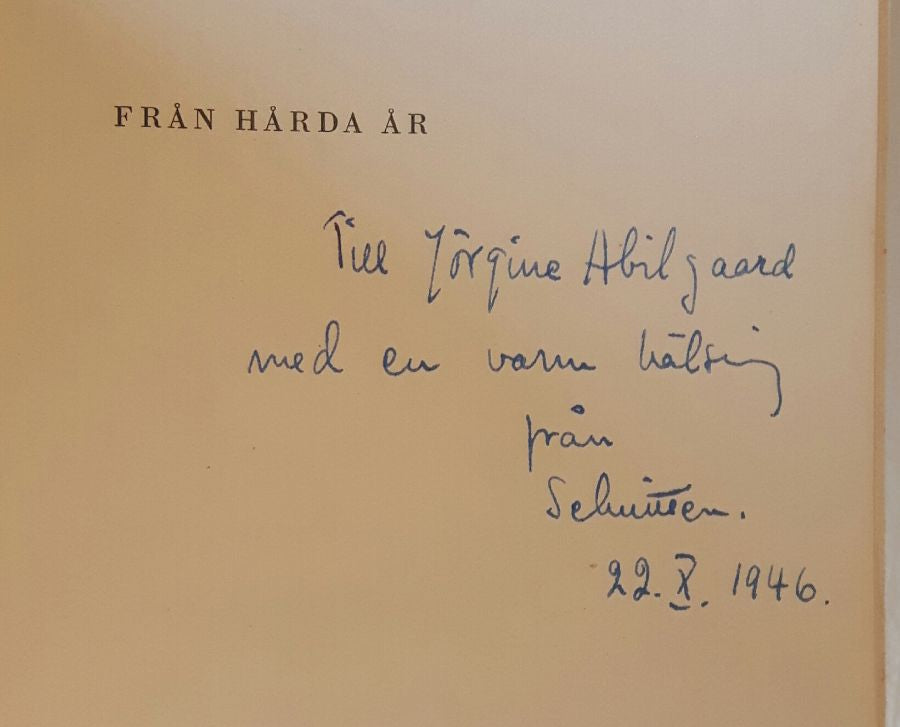 FRÅN HÅRDA ÅR
Till Jörgine Abilgaard
med en varm hälsning
från
22. X. 1946.